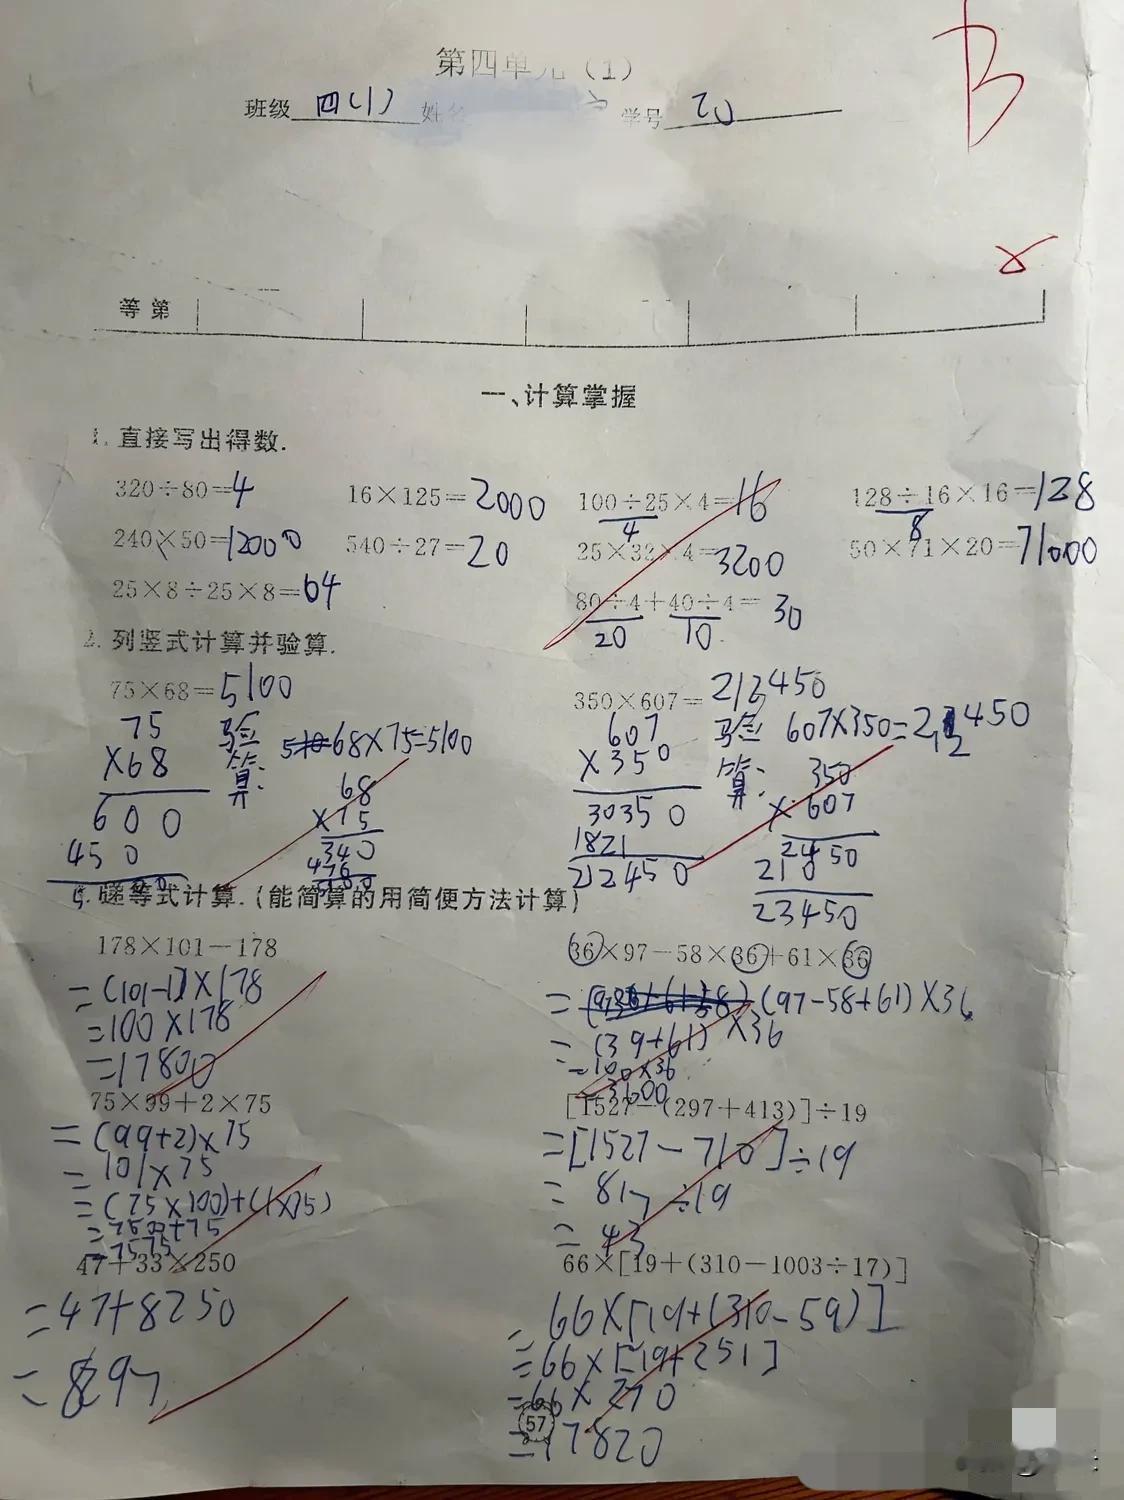 第四单元（1）
班级 四(1) 姓名 学号 20
B
等第
一、计算掌握
1. 直接写出得数.
320÷80=4 16×125=2000 100÷25×4=16 128÷16×16=128
4 8
240×50=12000 540÷27=20 25×32×4=3200 50×71×20=71000
25×8÷25×8=64 80÷4+40÷4= 30
20 10
2. 列竖式计算并验算.
75×68=5100 350×607=212450
75 验算: 68×75=5100 607 验算: 607×350=212450
×68 68 ×350 350
600 ×75 30350 ×607
450 340 1821 2450
476 212450 210
23450
递等式计算.(能简算的用简便方法计算)
178×101-178 36×97-58×36+61×36
=(101-1)×178 =(97-58+61)×36
=100×178 =(39+61)×36
=17800 =100×36
=3600
75×99+2×75 [1527-(297+413)]÷19
=(99+2)×75 =[1527-710]÷19
=101×75 =817÷19
=(75×100)+(1×75) =43
=7500+75
=7575
47+33×250 66×[19+(310-1003÷17)]
=47+8250 =66×[19+(310-59)]
=8297 =66×[19+251]
=66×270
=17820
57